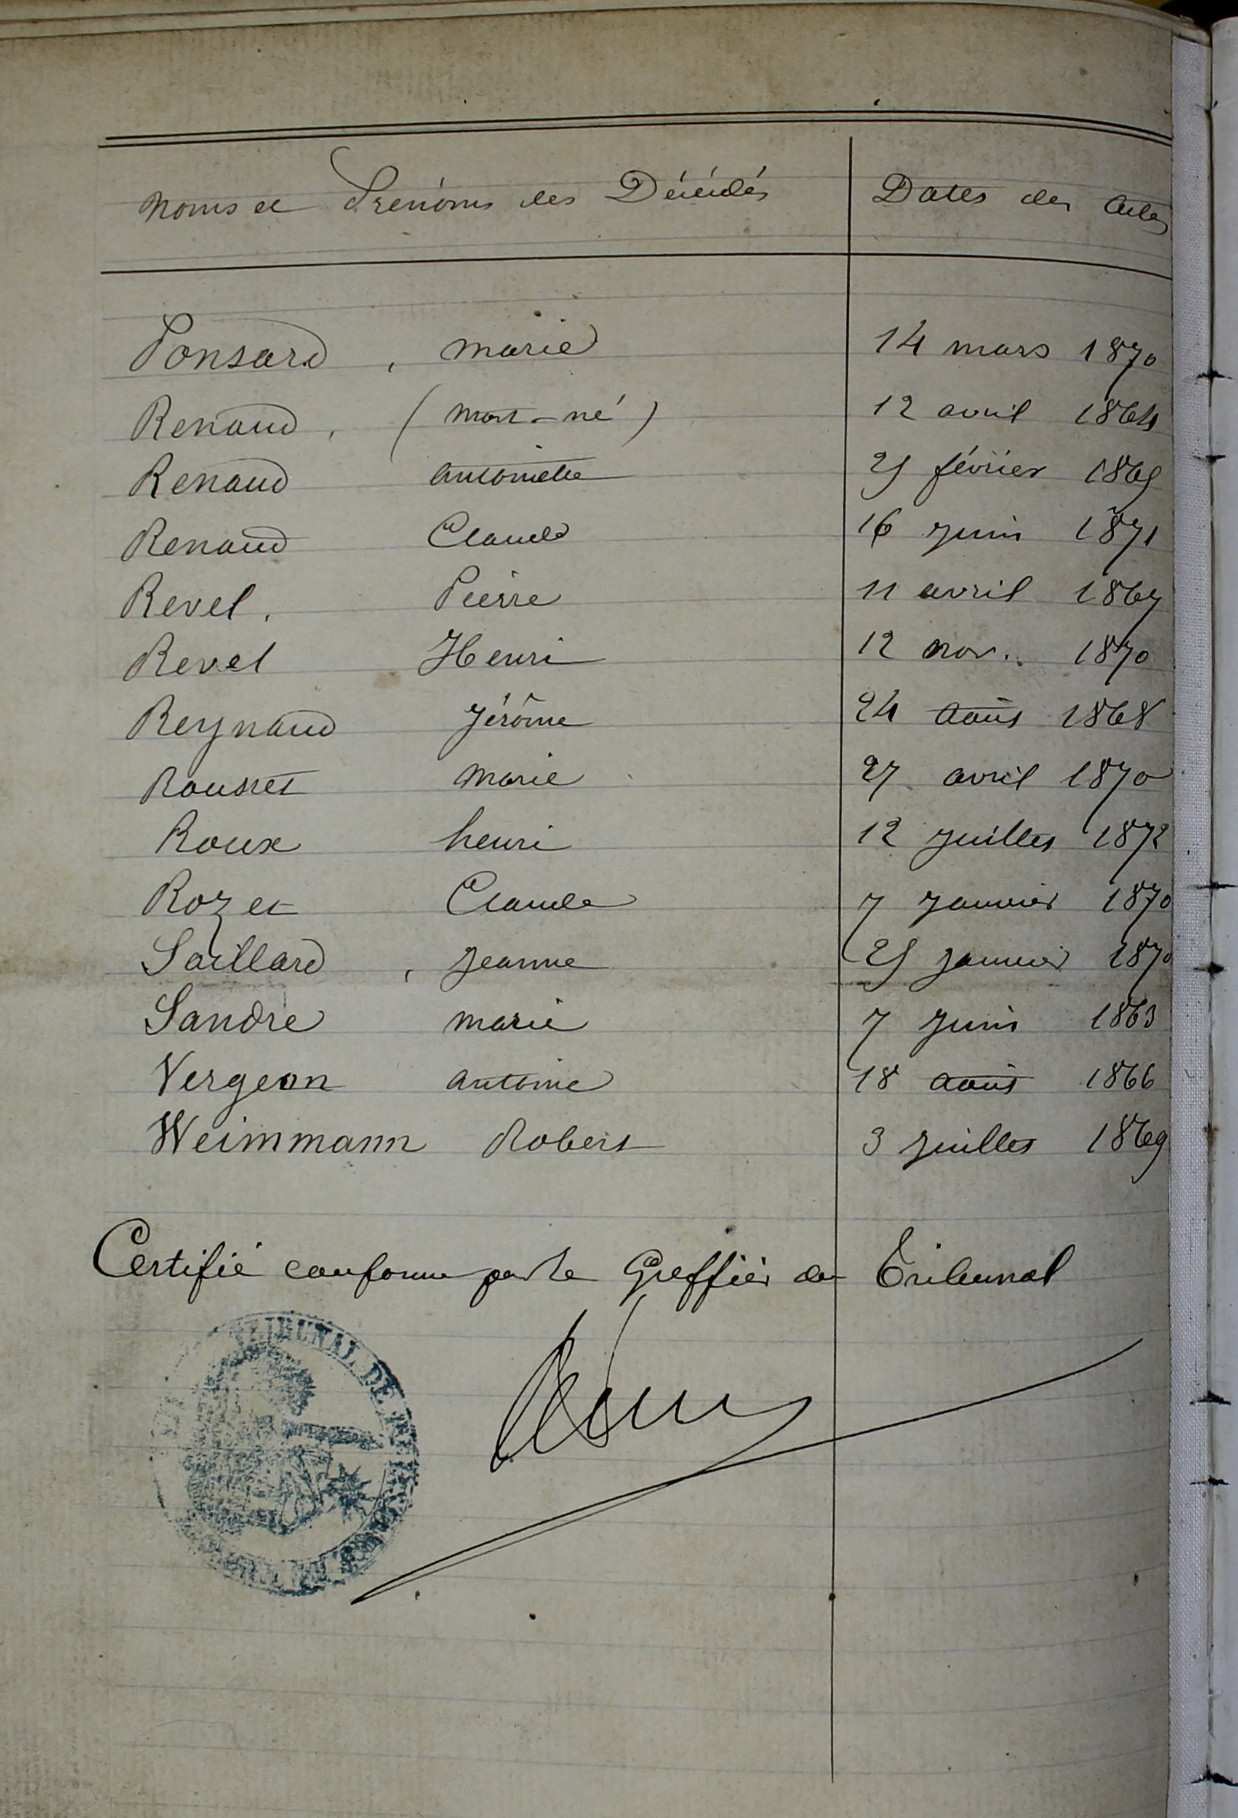 Noms et Prénoms des Décédés Dates des Actes
Ponsard, Marie 14 mars 1870
Renaud, (mort-né) 12 avril 1864
Renaud Antoinette 25 février 1865
Renaud Claude 16 juin 1871
Revel, Pierre 11 avril 1867
Revel Henri 12 nov. 1870
Reynaud Jérôme 24 août 1868
Rousset Marie 27 avril 1870
Roux henri 12 juillet 1872
Rozet Claude 7 janvier 1870
Saillard, Jeanne 25 janvier 1870
Sandre Marie 7 juin 1863
Vergeon Antoine 18 août 1866
Weimmann Robert 3 juillet 1869
Certifié conforme par le Greffier du Tribunal
TRIBUNAL DE